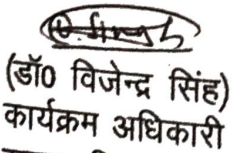 (डॉ0 विजेन्द्र सिंह)
कार्यक्रम अधिकारी